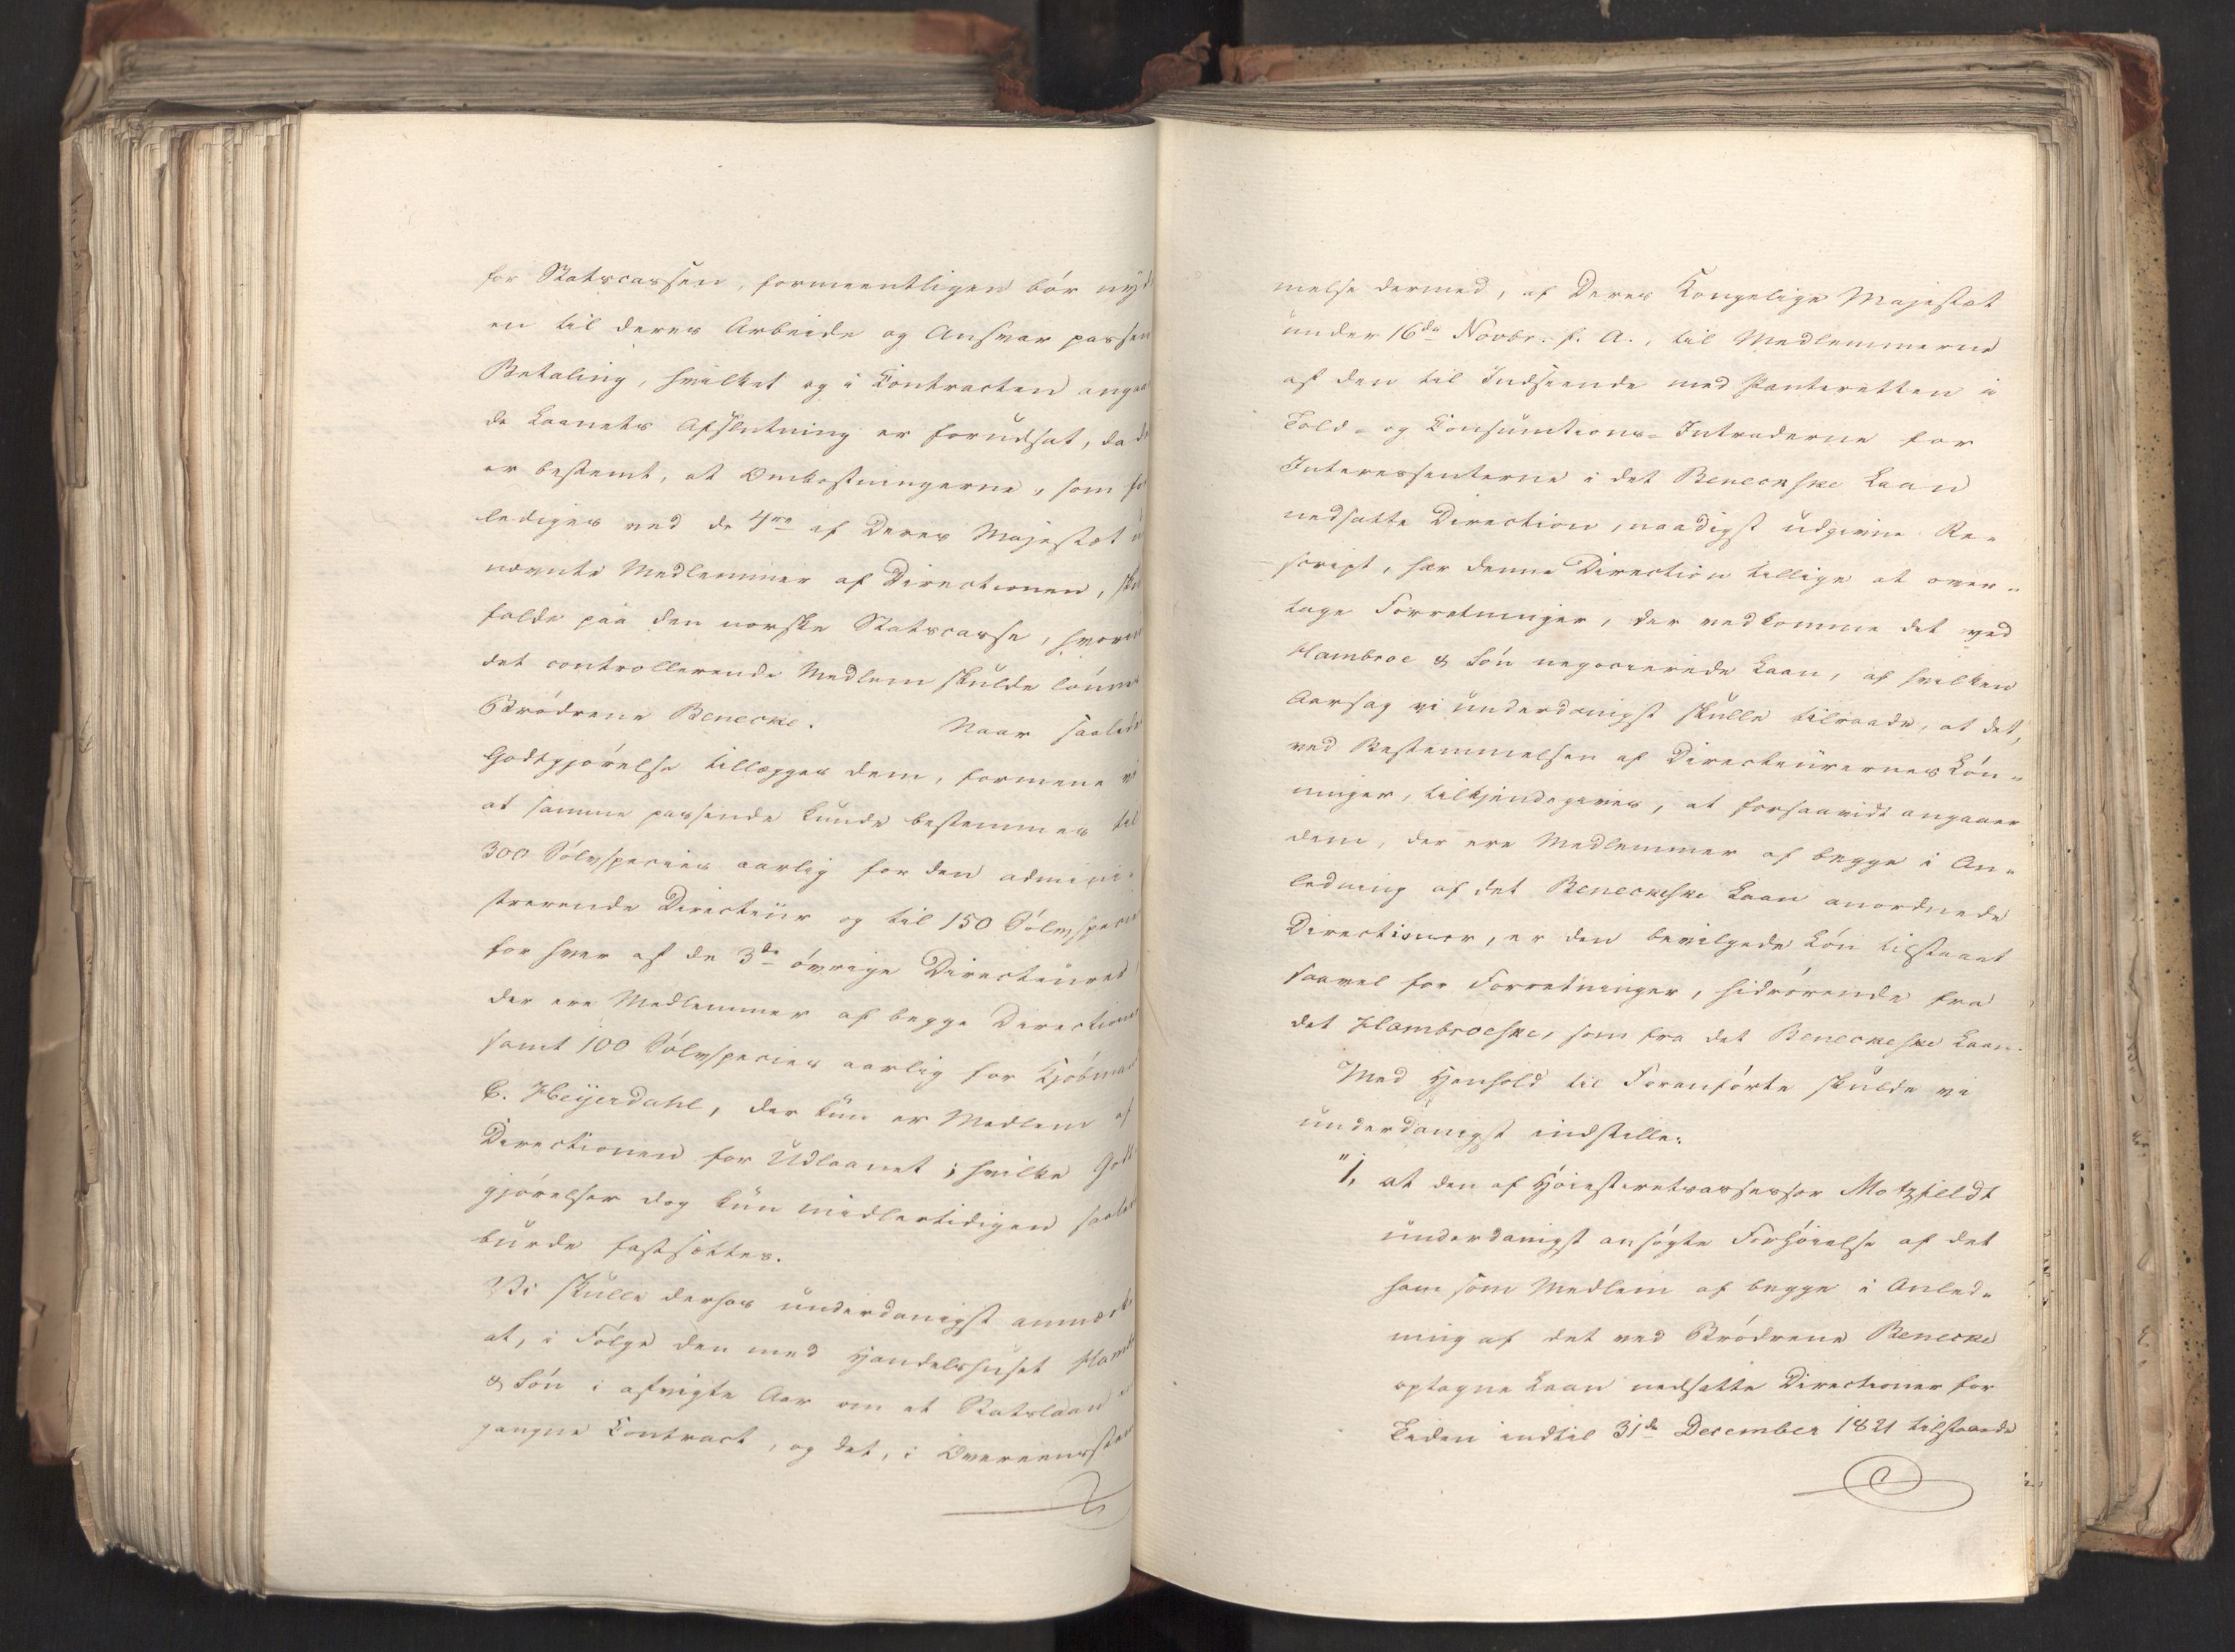 for Statscassen, formeentligen bör nyd
en til deres Arbeide og Ansvar passen
Betaling, hvilket og i Contracten angaa
de Laanets Afslutning er forudsat, da d
er bestemt, at Omkostningerne, som fo
lediges ved de 4re af Deres Majestæt u
nævnte Medlemmer af Directionen, skul
falde paa den norske Statscasse, hvorim
det controllerende Medlem skulde lönnes
Brödrene Benecke. Naar saalede
Godtgjörelse tillægges dem, formene vi
at samme passende kunde bestemmes til
300 Sölvspecies aarlig for den admini-
strerende Directeur og til 150 Sölvspecie
for hver af de 3de övrige Directeurer
der ere Medlemmer af begge Directione
samt 100 Sölvspecies aarlig for Kjöbman
C. Heijerdahl, der kun er Medlem af
Directionen for Udlaanet; hvilke Godt-
gjörelser dog kun midlertidigen saaled
burde fastsættes.
Vi skulle derhos underdanigst anmærk
at, i Fölge den med Handelshuset Hambr
& Sön i afvigte Aar om et Statslaan
gangne Contract, og det, i Overeensstem
melse dermed, af Deres Kongelige Majestæt
under 16de Novbr. f. A., til Medlemmerne
af den til Indseende med Panteretten i
Told- og Consumtions-Intraderne for
Interessenterne i det Beneckske Laan
nedsatte Direction, naadigst udgivne Re-
script, har denne Direction tillige at over-
tage Forretninger, der vedkomme det ved
Hambroe & Sön negocierede Laan, af hvilken
Aarsag vi underdanigst skulle tilraade, at det,
ved Bestemmelsen af Directeurernes Lön-
ninger, tilkjendegives, at forsaavidt angaaer
dem, der ere Medlemmer af begge i An-
ledning af det Beneckeske Laan anordnede
Directioner, er den bevilgede Lön tilstaaet
saavel for Forretninger, hidrörende fra
det Hambroeske, som fra det Beneckeske Laan.
Med Henhold til Foranförte skulde vi
underdanigst indstille:
"1, at den af Höiesteretsassessor Motzfeldt
underdanigst ansögte Forhöielse af det
ham som Medlem af begge i Anled-
ning af det ved Brödrene Benecke
optagne Laan nedsatte Directioner for
Tiden indtil 31de December 1821 tilstaaede